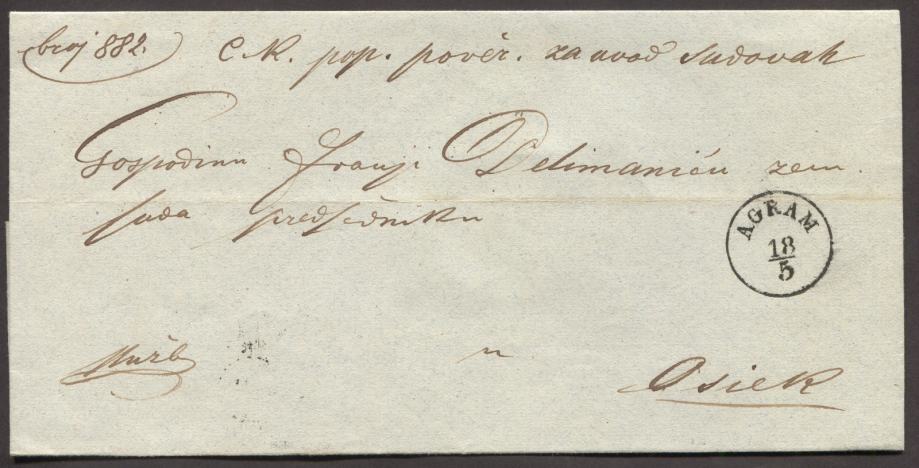 broj 882.
C. K. pop. povĕr. za uvod sudovah
Gospodinu Franji Delimaniću zem.
suda predsĕdniku
AGRAM
18
5
u
Osiek